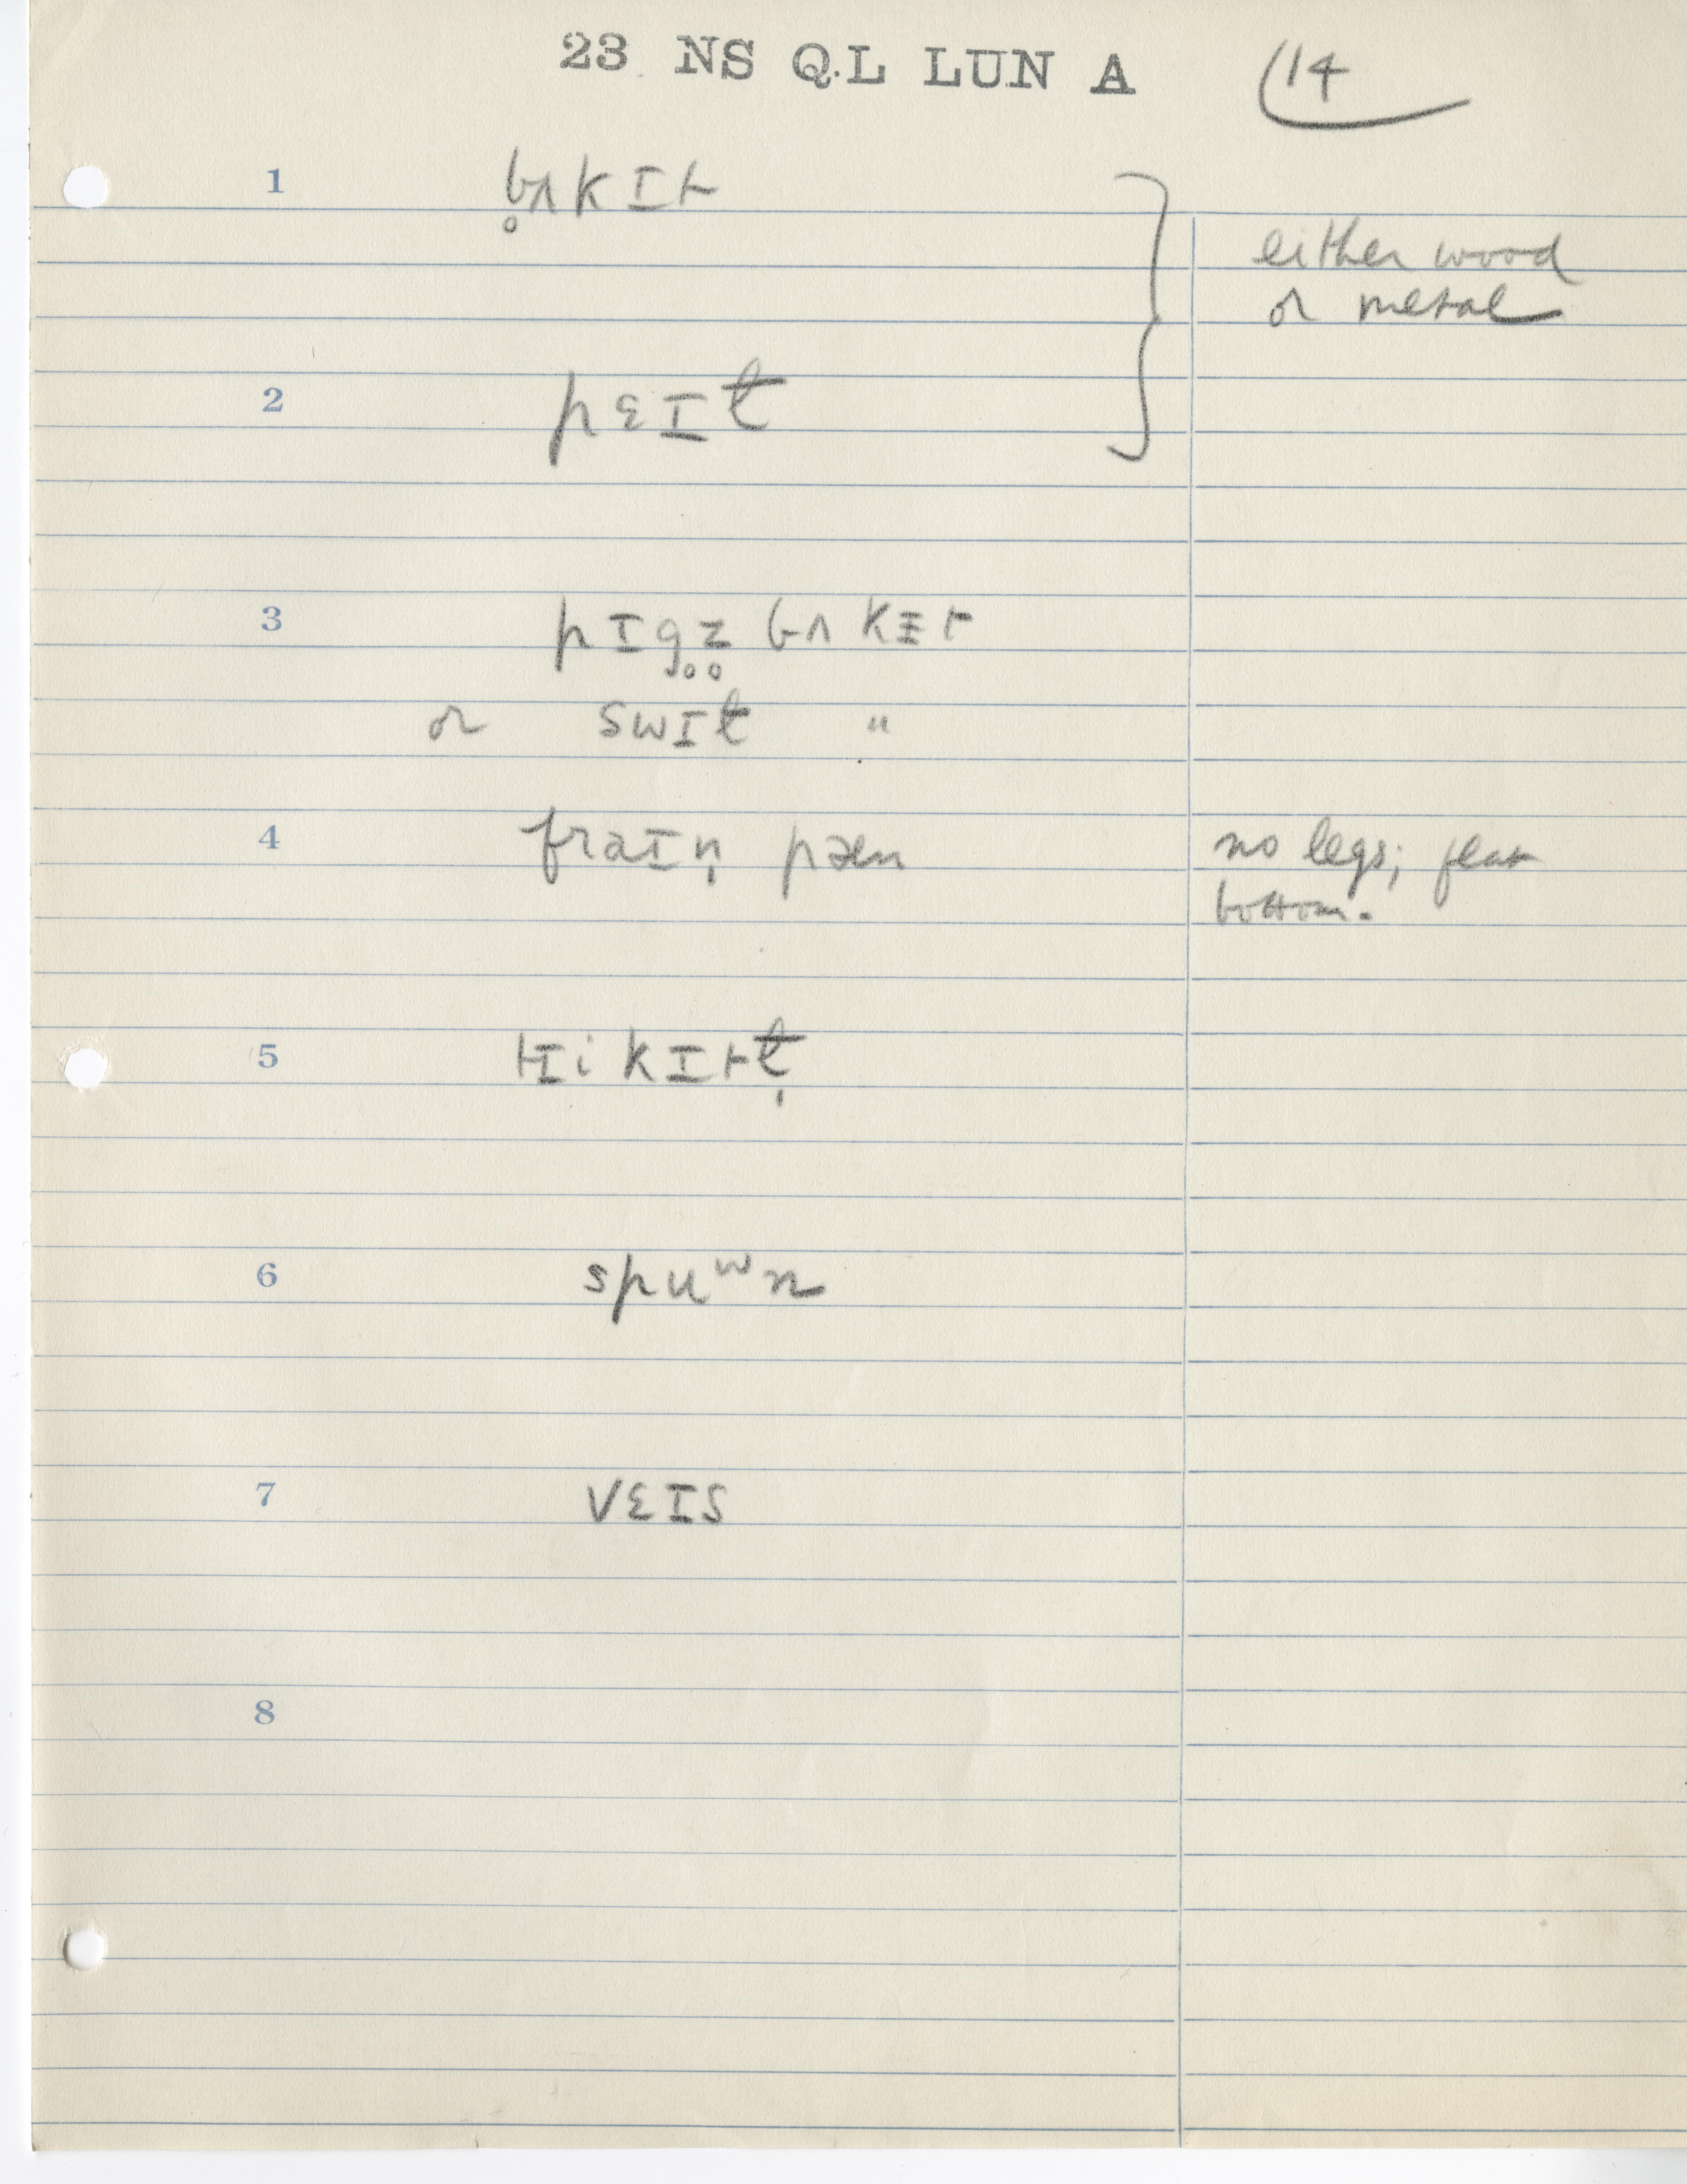 23 NS QL LUN A 14
1 b̥ʌkɪt
either wood
or metal
2 pɛɪɫ
3 pɪg̥z̥ bʌkɪ̵t
or swɪɫ "
4 fraɪn̩ pæn
no legs; flat
bottom.
5 tɪikɪtɫ̩
6 spuʷn
7 vɛɪs
8